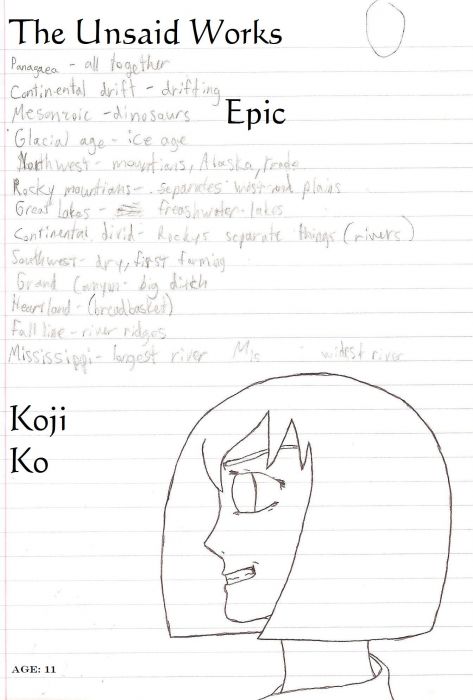 The Unsaid Works
Panagaea - all together
Continental drift - drifting
Epic
Mesonzoic - dinosaurs
Glacial age - ice age
Northwest - mountians, Alaska,
Rocky mountians - separates west and plains
Great lakes - freashwater lakes
Continental divid - Rockys separate things (rivers)
Southwest - dry, first farming
Grand Canyon - big ditch
Heartland - (breadbasket)
Fall line - river ridges
Mississippi - longest river Mis widest river
Koji
Ko
AGE: 11